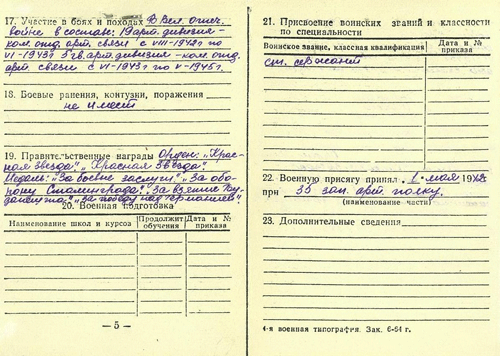 17. Участие в боях и походах В Вел. отеч.
войне в составе: 19 арт. дивизия –
ком. отд. арт. связи с VIII-1942 г по
VI-1943 г 5 гв. арт. дивизия – ком. отд.
арт. связи с VI-1943 г по V-1945 г.
18. Боевые ранения, контузии, поражения
не имеет
19. Правительственные награды Орден: „Крас-
ная звезда", „Красная Звезда"
Медаль: „За боевые заслуги", „За обо-
рону Сталинграда", „За взятие Бу-
дапешта", „За победу над Германией"
20. Военная подготовка
Наименование школ и курсов
Продолжит. обучения
Дата и № приказа
— 5 —
21. Присвоение воинских званий и классности
по специальности
Воинское звание, классная квалификация
Дата и № приказа
ст. сержант
22. Военную присягу принял 1 мая 1942 г.
при 35 зап. арт. полку.
(наименование части)
23. Дополнительные сведения
4-я военная типография. Зак. 6-54 г.